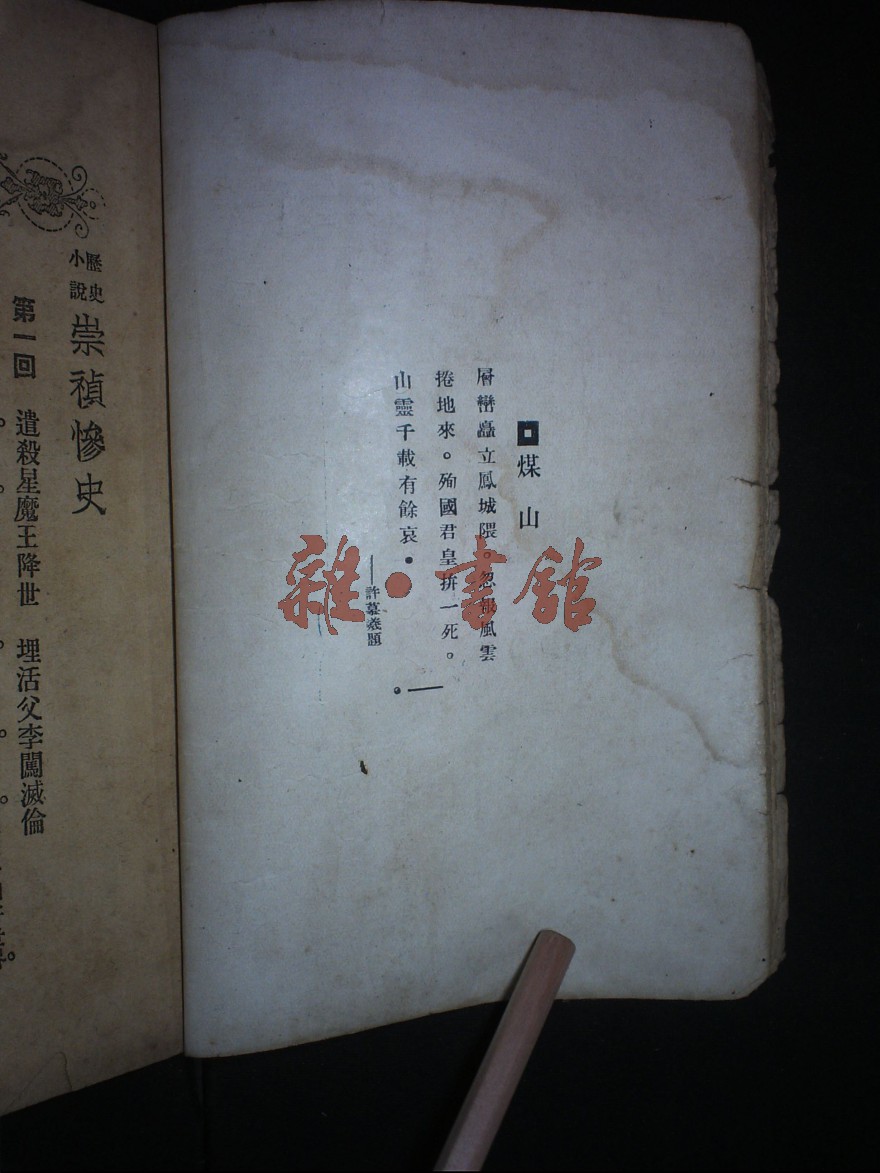 煤山
層巒矗立鳳城隈。忽報風雲
捲地來。殉國君皇拚一死。
山靈千載有餘哀。
——許慕羲題
歷史小說 崇禎慘史
第一回 遣殺星魔王降世 埋活父李闖滅倫
雜·書館